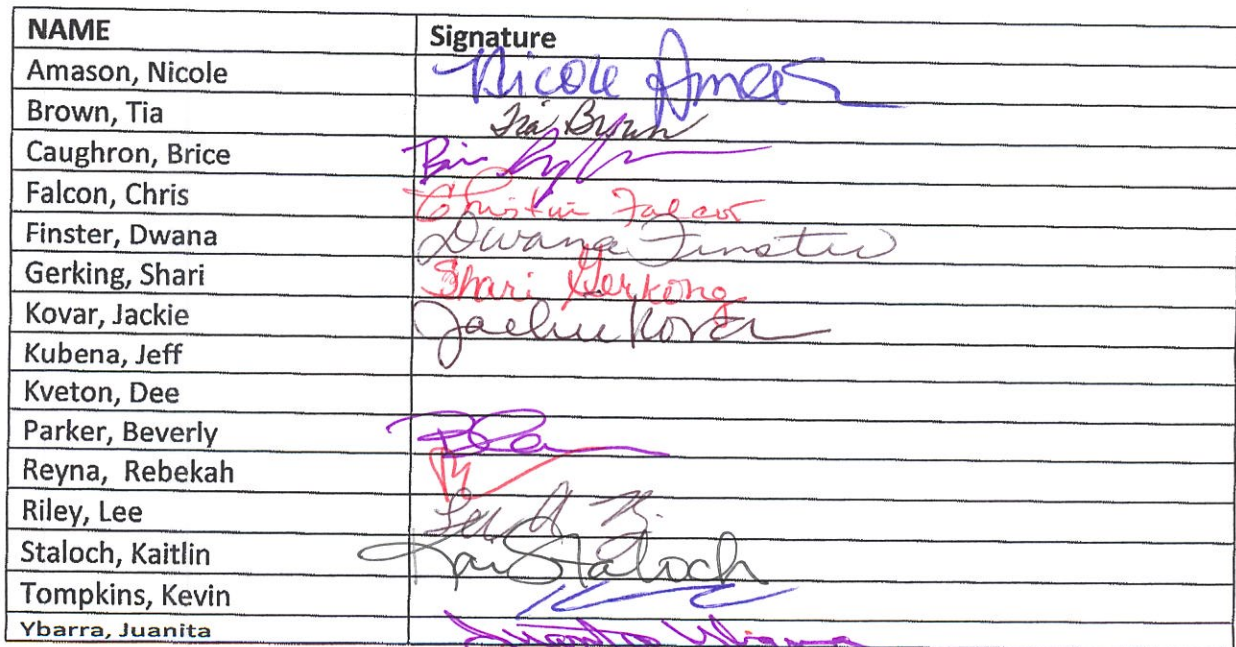 NAME Signature
Amason, Nicole Nicole
Brown, Tia Tia Brown
Caughron, Brice
Falcon, Chris Falcon
Finster, Dwana Dwana Finster
Gerking, Shari Shari Gerking
Kovar, Jackie Jackie Kovar
Kubena, Jeff
Kveton, Dee
Parker, Beverly
Reyna, Rebekah
Riley, Lee Lee
Staloch, Kaitlin Kai Staloch
Tompkins, Kevin
Ybarra, Juanita Juanita Ybarra